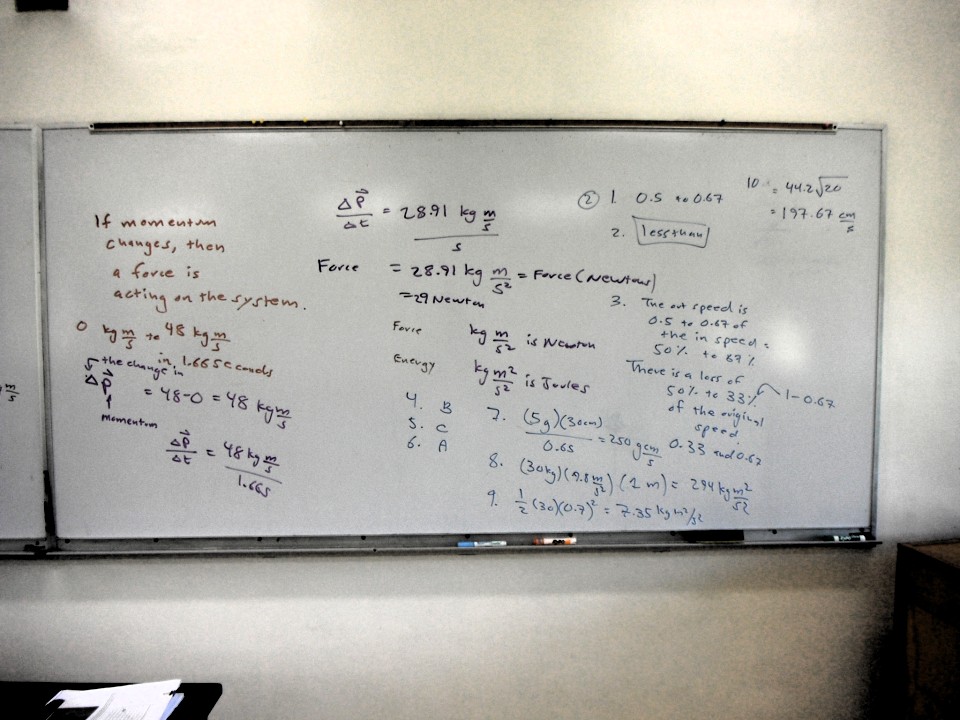 If momentum
changes, then
a force is
acting on the system.
0 kg m/s to 48 kg m/s
in 1.66 seconds
the change in
Δp⃗ = 48-0 = 48 kg m/s
momentum
Δp⃗/Δt = 48 kg m/s / 1.66s
Δp⃗/Δt = 28.91 kg m/s / s
Force = 28.91 kg m/s² = Force (Newtons)
=29 Newton
Force kg m/s² is Newton
Energy kg m²/s² is Joules
4. B
5. C
6. A
7. (5g)(30cm) / 0.65 = 250 g cm/s
8. (30kg)(9.8 m/s²)(1 m) = 294 kg m²/s²
9. 1/2 (30)(0.7)² = 7.35 kg m²/s²
② 1. 0.5 to 0.67
2. less than
3. The out speed is
0.5 to 0.67 of
the in speed =
50% to 67%
There is a loss of
50% to 33% 1-0.67
of the original
speed
0.33 and 0.62
10. = 44.2√20
= 197.67 cm/s
m/s